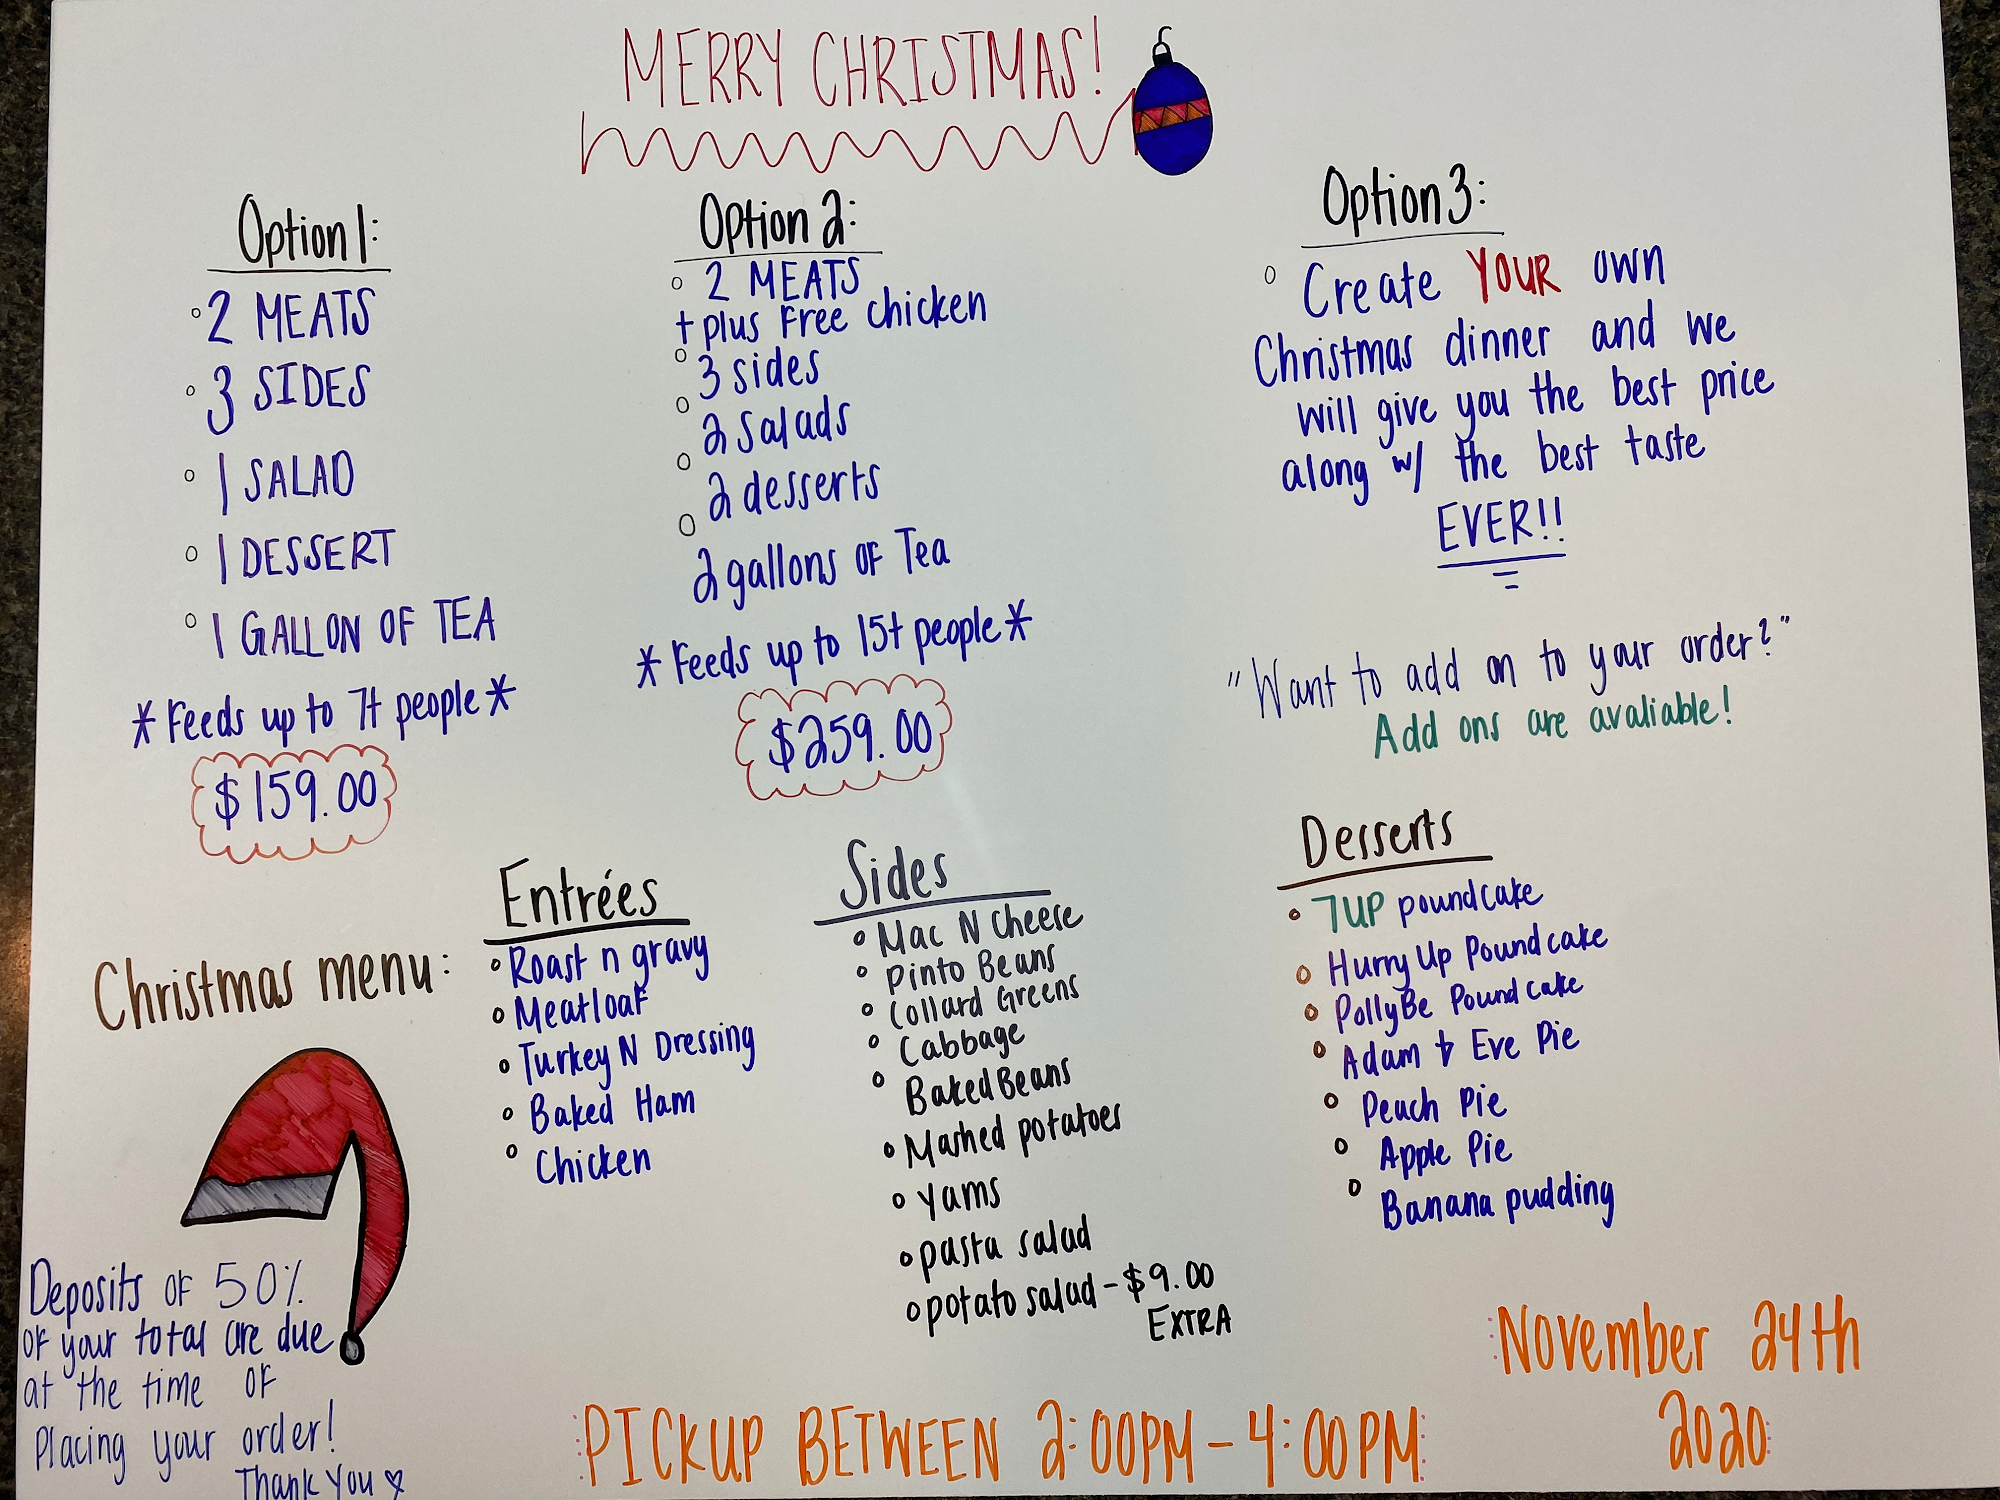 MERRY CHRISTMAS!
Option 1:
2 MEATS
3 SIDES
1 SALAD
1 DESSERT
1 GALLON OF TEA
*Feeds up to 7+ people*
$159.00
Option 2:
2 MEATS
+ plus Free chicken
3 sides
2 Salads
2 desserts
2 gallons of Tea
*Feeds up to 15+ people*
$259.00
Option 3:
Create YOUR own
Christmas dinner and we
will give you the best price
along w/ the best taste
EVER!!
"Want to add on to your order?"
Add ons are avaliable!
Christmas menu:
Entrées
Roast n gravy
Meatloaf
Turkey N Dressing
Baked Ham
Chicken
Sides
Mac N Cheese
Pinto Beans
Collard Greens
Cabbage
Baked Beans
Mashed potatoes
Yams
pasta salad
potato salad - $9.00
EXTRA
Desserts
7UP poundcake
Hurry Up Poundcake
PollyBe Poundcake
Adam & Eve Pie
Peach Pie
Apple Pie
Banana pudding
Deposits of 50%
of your total are due
at the time of
Placing your order!
Thank You
PICKUP BETWEEN 2:00PM - 4:00PM
November 24th
2020